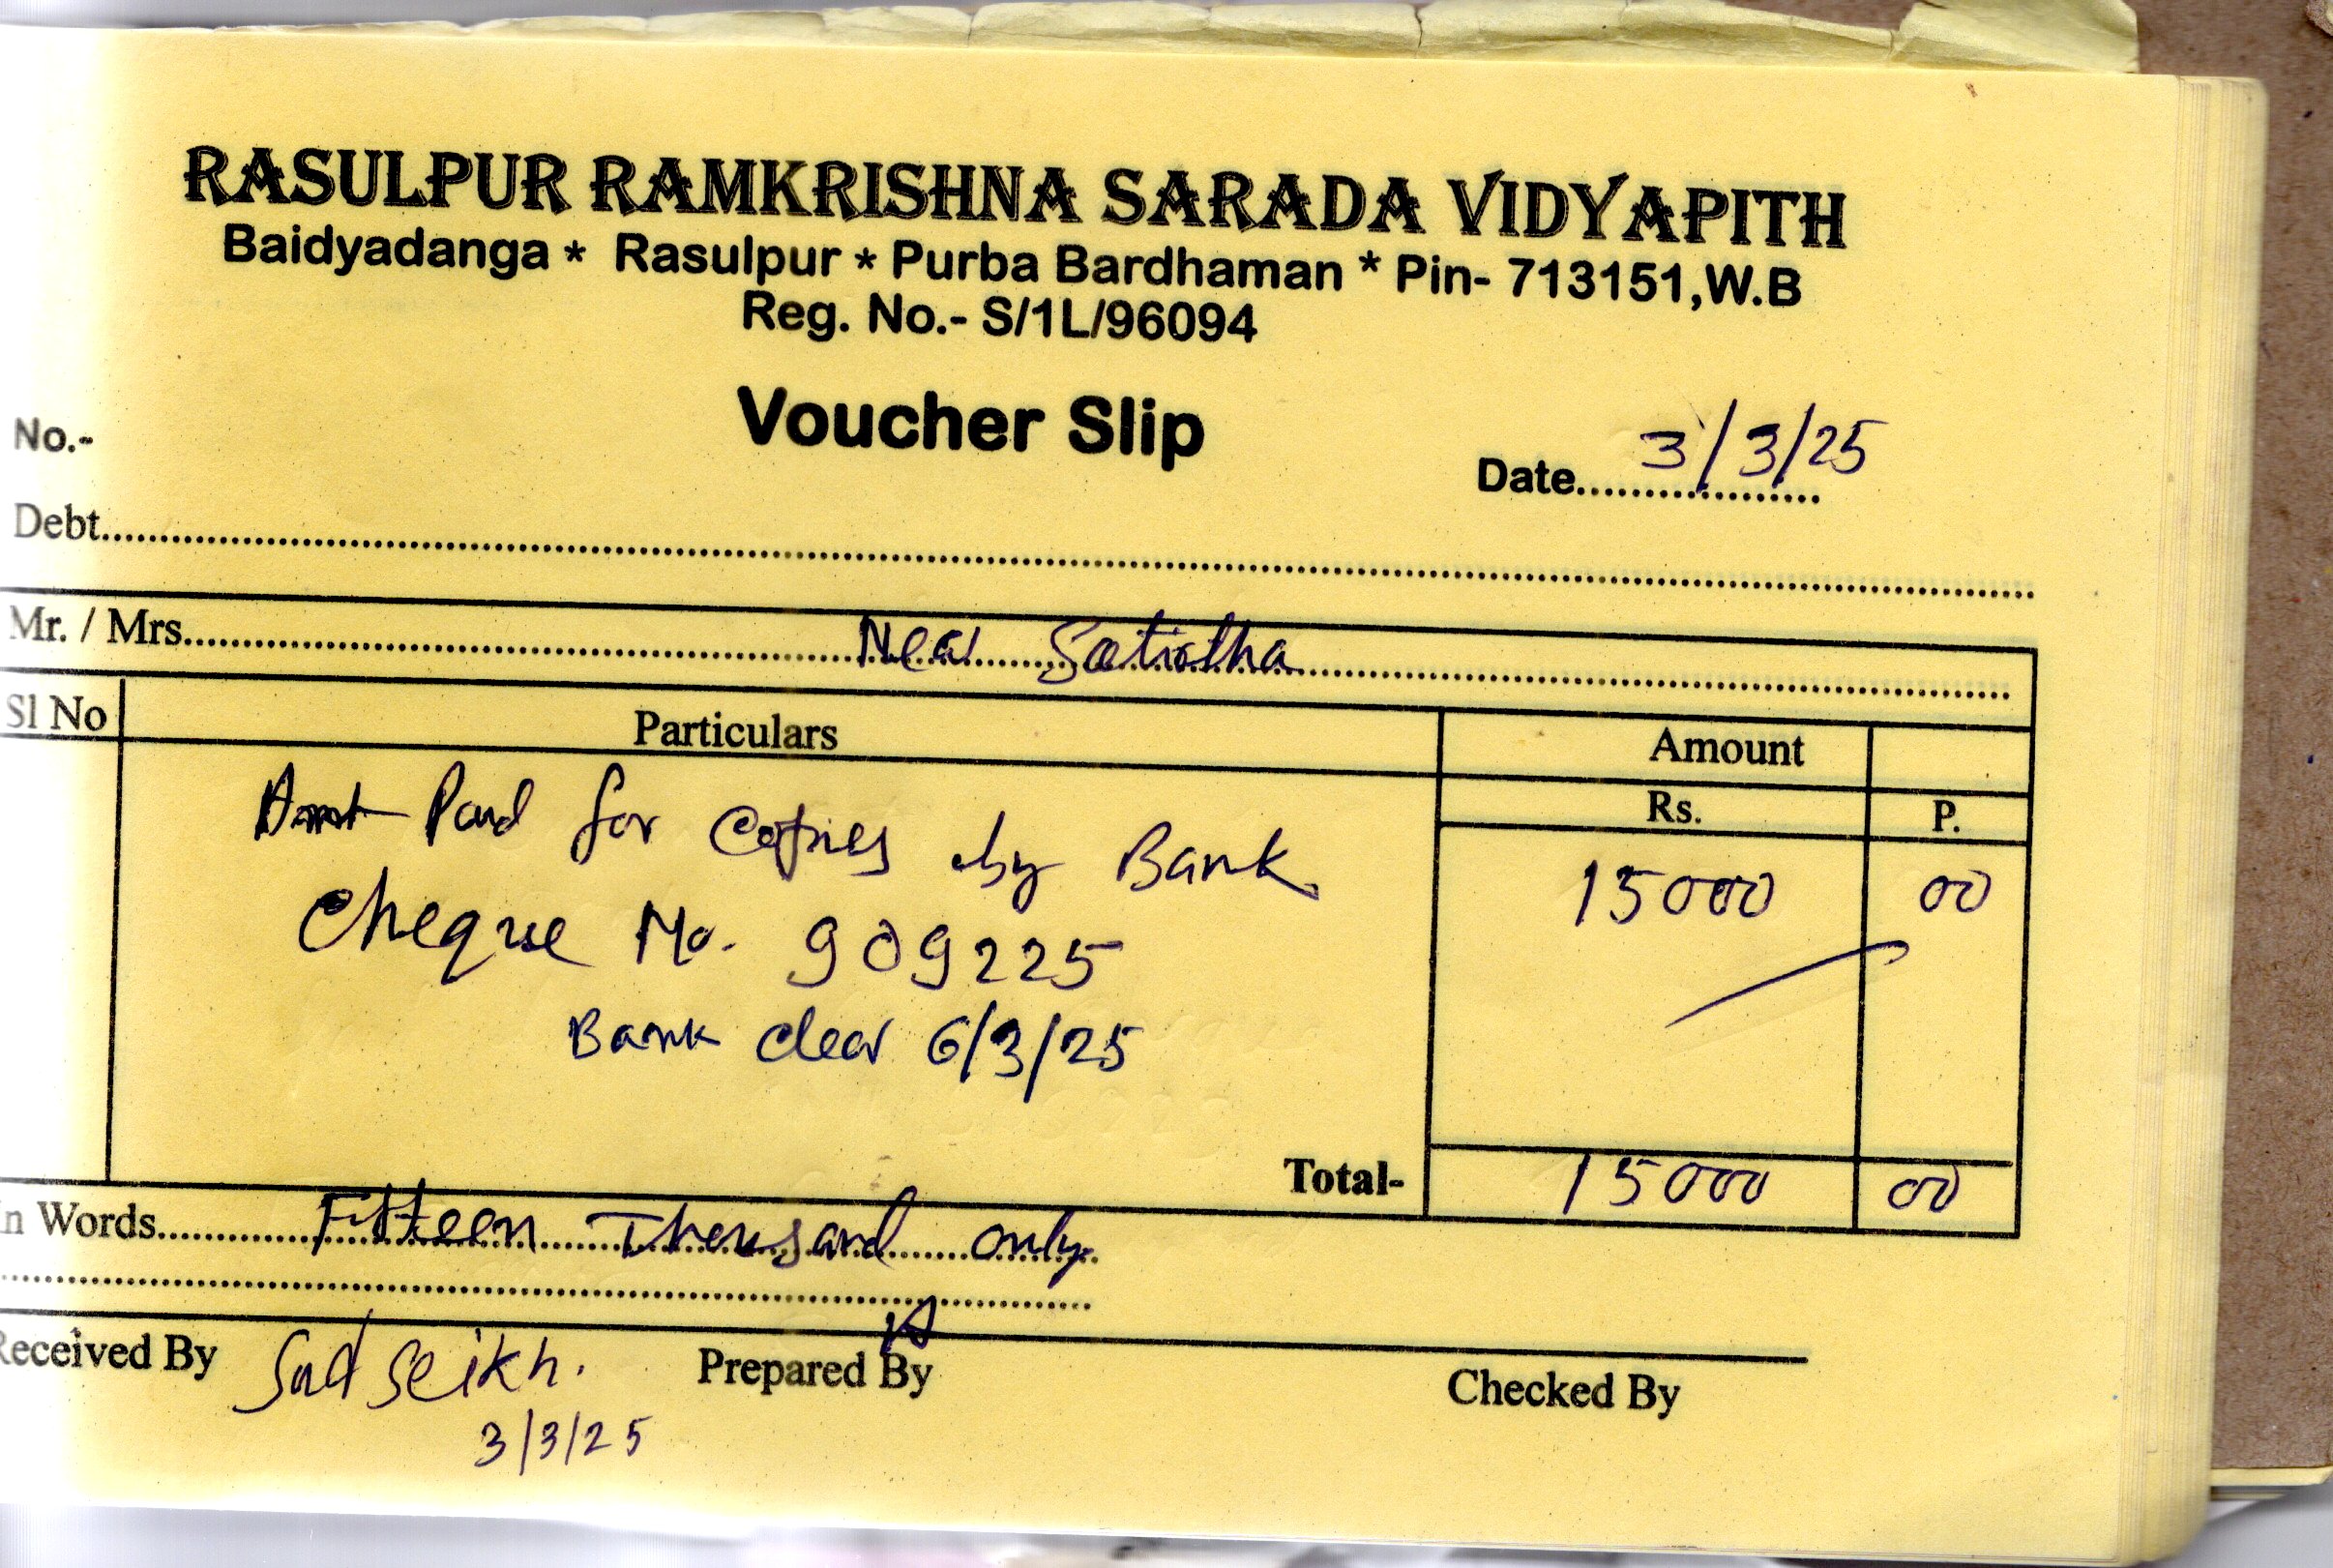 RASULPUR RAMKRISHNA SARADA VIDYAPITH
Baidyadanga * Rasulpur * Purba Bardhaman * Pin- 713151,W.B
Reg. No.- S/1L/96094
Voucher Slip
No.-
Date.................. 3/3/25
Debt....................
Mr. / Mrs....................
Sl No Particulars Amount
Rs. P.
Amt Paid for Copies by Bank 15000 00
Cheque No. 909225
Bank clear 6/3/25
Total- 15000 00
n Words.......... Fifteen Thousand only.
Received By Seikh. Prepared By Checked By
3/3/25